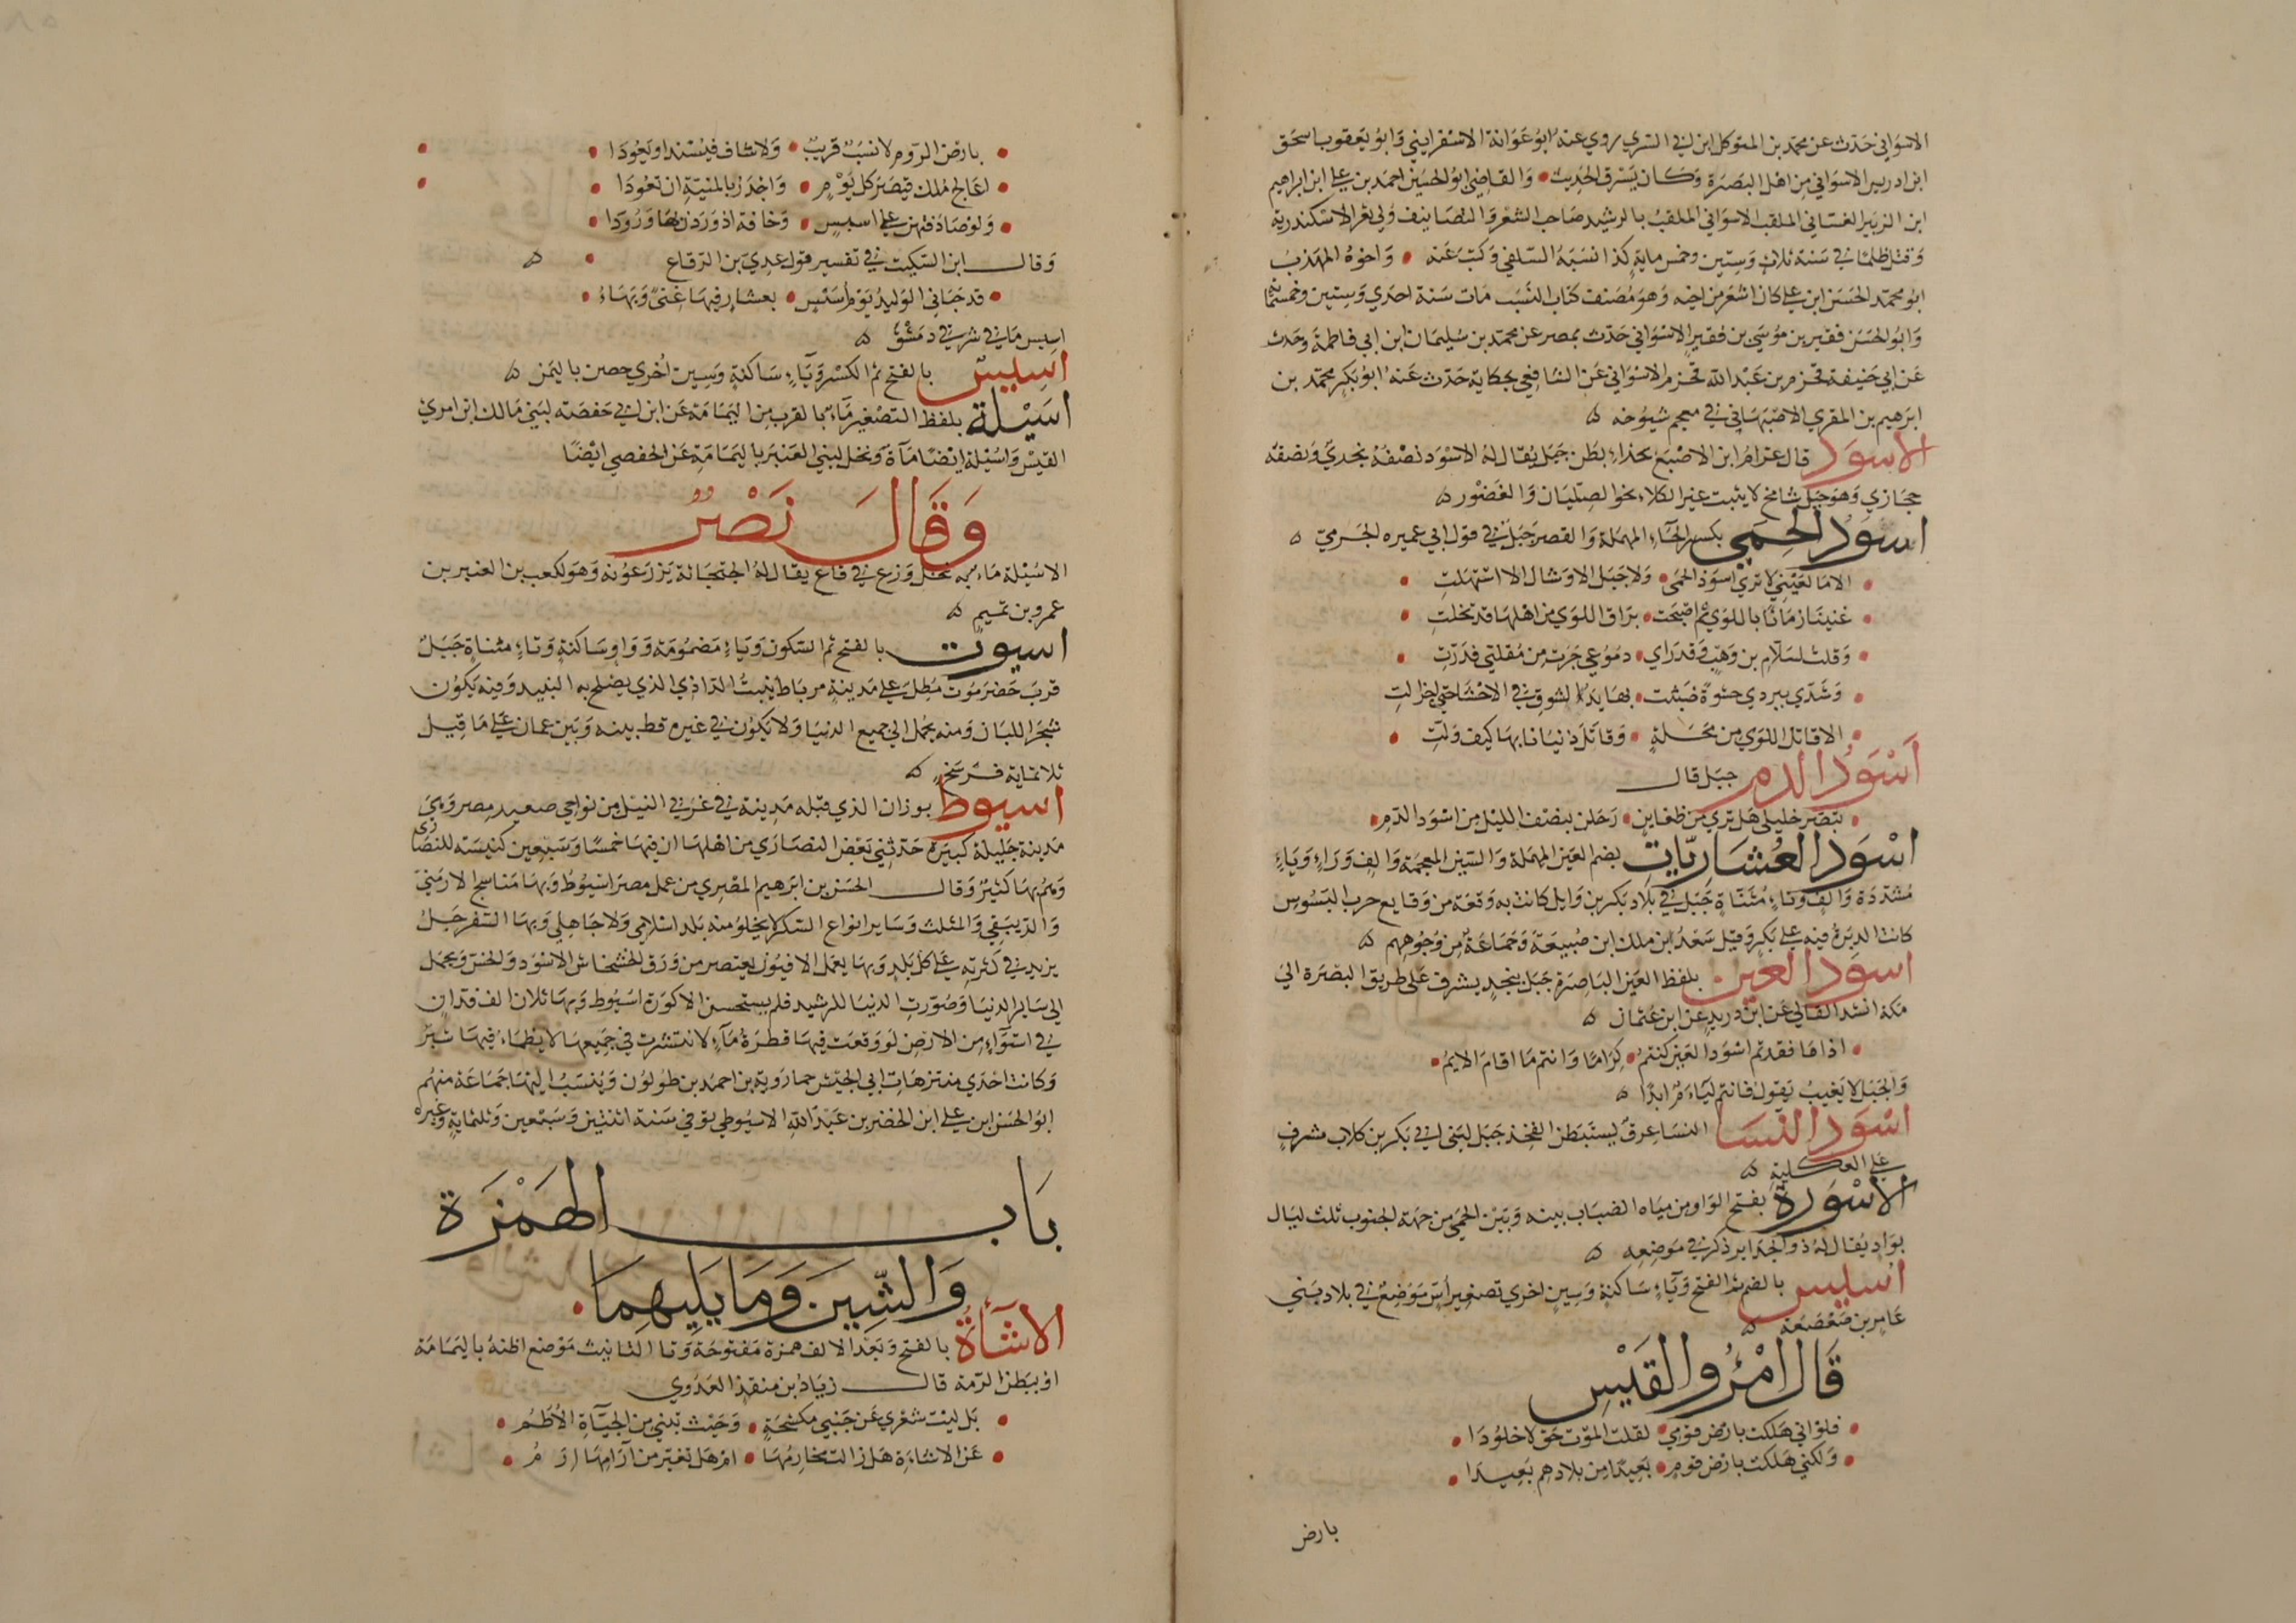 الاسواني حدث عن محمد بن المتوكل ابن ابي السري روي عنه ابو عوانة الاسفرايني وابو يعقوب اسحق
ابن ادريس الاسواني من اهل البصرة وكان يسرق الحديث والقاضي ابو الحسين احمد بن علي ابن ابراهيم
ابن الزبير الغساني الملقب الاسواني الملقب بالرشيد صاحب الشعر والتصانيف ولي ثغر الاسكندرية
وقتل ظلما في سنة ثلاث وستين وخمس ماية كذا نسبه السلفي وكتب عنه واخوه المهذب
ابو محمد الحسن ابن علي كان اشعر من اخيه وهو مصنف كتاب النسب مات سنة احدي وستين وخمسماية
وابو الحسن فقير بن موسي بن فقير الاسواني حدث بمصر عن محمد بن سليمان ابن ابي فاطمة وحدث
عن ابي حنيفة قحزم بن عبد الله قحزم الاسواني عن الشافعي بحكاية حدث عنه ابو بكر محمد بن
ابرهيم بن المقري الاصبهاني في معجم شيوخه
الاسود قال عرام ابن الاصبغ بحذاء بطن جبل يقال له الاسود نصفه نجدي ونصفه
حجازي وهو جبل شامخ لا ينبت غير الكلاء نحو الصليان والغضور
اسود الحمي بكسر الحاء المهملة والقصر جبل في قول ابي عميره الجرمي
الا ما لعيني لا تري اسود الحمى ولا جبل الاوشال الا استهلت
غنينا زمانا باللوي ثم اصبحت براق اللوي من اهلها قد تخلت
وقلت لسلام بن وهب وقد راي دموعي جرت من مقلتي فدرت
وشدي ببردي حشوة ضبثت بها يد الشوق في الاحشا حتي احزالت
الا قاتل اللوي من محلة وقاتل دنيانا بها كيف ولت
اسود الدم جبل قال
تبصر خليلي هل تري من ظعاين رحلن بنصف الليل من اسود الدم
اسود العشاريات بضم العين المهملة والشين المعجمة والف وراء وياء
مشددة والف وتاء مثناة جبل في بلاد بكر بن وايل كانت به وقعة من وقايع حرب البسوس
كانت الدبرة فيه علي بكر وقيل سعد ابن ملك ابن ضبيعة وجماعة من وجوههم
اسود العين بلفظ العين الباصرة جبل بنجد يشرف علي طريق البصرة الي
مكة انشد القالي عن ابن دريد عن ابن عثمان
اذا ما فقدتم اسود العين كنتم كراما وانتم ما اقام الايم
والجبل لا يغيب يقول فانتم لياء م ابدا
اسود النسا النسا عرق يستبطن الفخذ جبل لبني ابي بكر بن كلاب مشرف
علي العكلية
الاسورة بفتح الواو من مياه الضباب بينه وبين الحمي من جهة الجنوب ثلث ليال
بواد يقال له ذو الجداير ذكر في موضعه
اسيس بالضم ثم الفتح وياء ساكنة وسين اخري تصغير اس موضع في بلاد بني
عامر بن صعصعة
قال امرؤ القيس
فلو اني هلكت بارض قومي لقلت الموت حق لا خلودا
ولكني هلكت بارض قوم بعيدا من بلادهم بعيدا
بارض
بارض الروم لا نسب قريب ولا شاف فيسند او يعودا
اعالج ملك قيصر كل يوم واجدر بالمنية ان تعودا
ولو صادفتهن علي اسيس وخافة اذ وردن بها ورودا
وقال ابن السكيت في تفسير قول عدي بن الرقاع
قد حباني الوليد يوم اسيس بعشار فيها غنى وبهاء
اسيس ما في شرقي دمشق
اسيس بالفتح ثم الكسر وياء ساكنة وسين اخري حصن باليمن
اسيلة بلفظ التصغير ماء بالقرب من اليمامة عن ابن ابي حفصة لبني مالك ابن امري
القيس واسيلة ايضا ماءة ونخل لبني العنبر باليمامة عن الحفصي ايضا
وقال نصر
الاسيلة ماء به نخل وزرع في قاع يقال له الجثجاثة يزرعونه وهو لكعب بن العنبر بن
عمرو بن تميم
اسيوت بالفتح ثم السكون وياء مضمومة وواو ساكنة وتاء مثناة جبل
قرب حضرموت مطل علي مدينة مرباط ينبت الداذي الذي يصلح به النبيد وفيه يكون
شجر اللبان ومنه يحمل الي جميع الدنيا ولا يكون في غيره قط بينه وبين عمان علي ما قيل
ثلاثماية فرسخ
اسيوط بوزان الذي قبله مدينة في غربي النيل من نواحي صعيد مصر وهي
مدينة جليلة كبيرة حدثني بعض النصاري من اهلها ان فيها خمسا وسبعين كنيسة للنصارى
وهم بها كثير وقال الحسن بن ابرهيم المصري من عمل مصر اسيوط وبها مناسج الارمني
والدبيقي والمثلث وساير انواع السكر لا يخلو منه بلد اسلامي ولا جاهلي وبها السفرجل
يزيد في كثرته علي كل بلد وبها يعمل الافيون يعتصر من ورق الخشخاش الاسود والخس ويحمل
الي ساير الدنيا وصورت الدنيا للرشيد فلم يستحسن الا كورة اسيوط وبها ثلاثون الف فدان
في استواء من الارض لو وقعت فيها قطرة ماء لانتشرت في جميعها لا يظماء فيها شبر
وكانت احدي منتزهات ابي الجيش خمارويه بن احمد بن طولون وينسب اليها جماعة منهم
ابو الحسن ابن علي ابن الخضر بن عبد الله الاسيوطي توفي في سنة اثنتين وسبعين وثلثماية وغيره
باب الهمزة
والشين وما يليهما
الاشاة بالفتح وبعد الالف همزة مفتوحة وتا التانيث موضع اظنه باليمامة
او ببطن الرمة قال زياد ابن منقذ العدوي
بل ليت شعري عن جنبي مكشحة وحيث تبني من الحياة الاطم
عن الاشاءة هل زالت مخارمها ام هل تغير من آرامها ارم